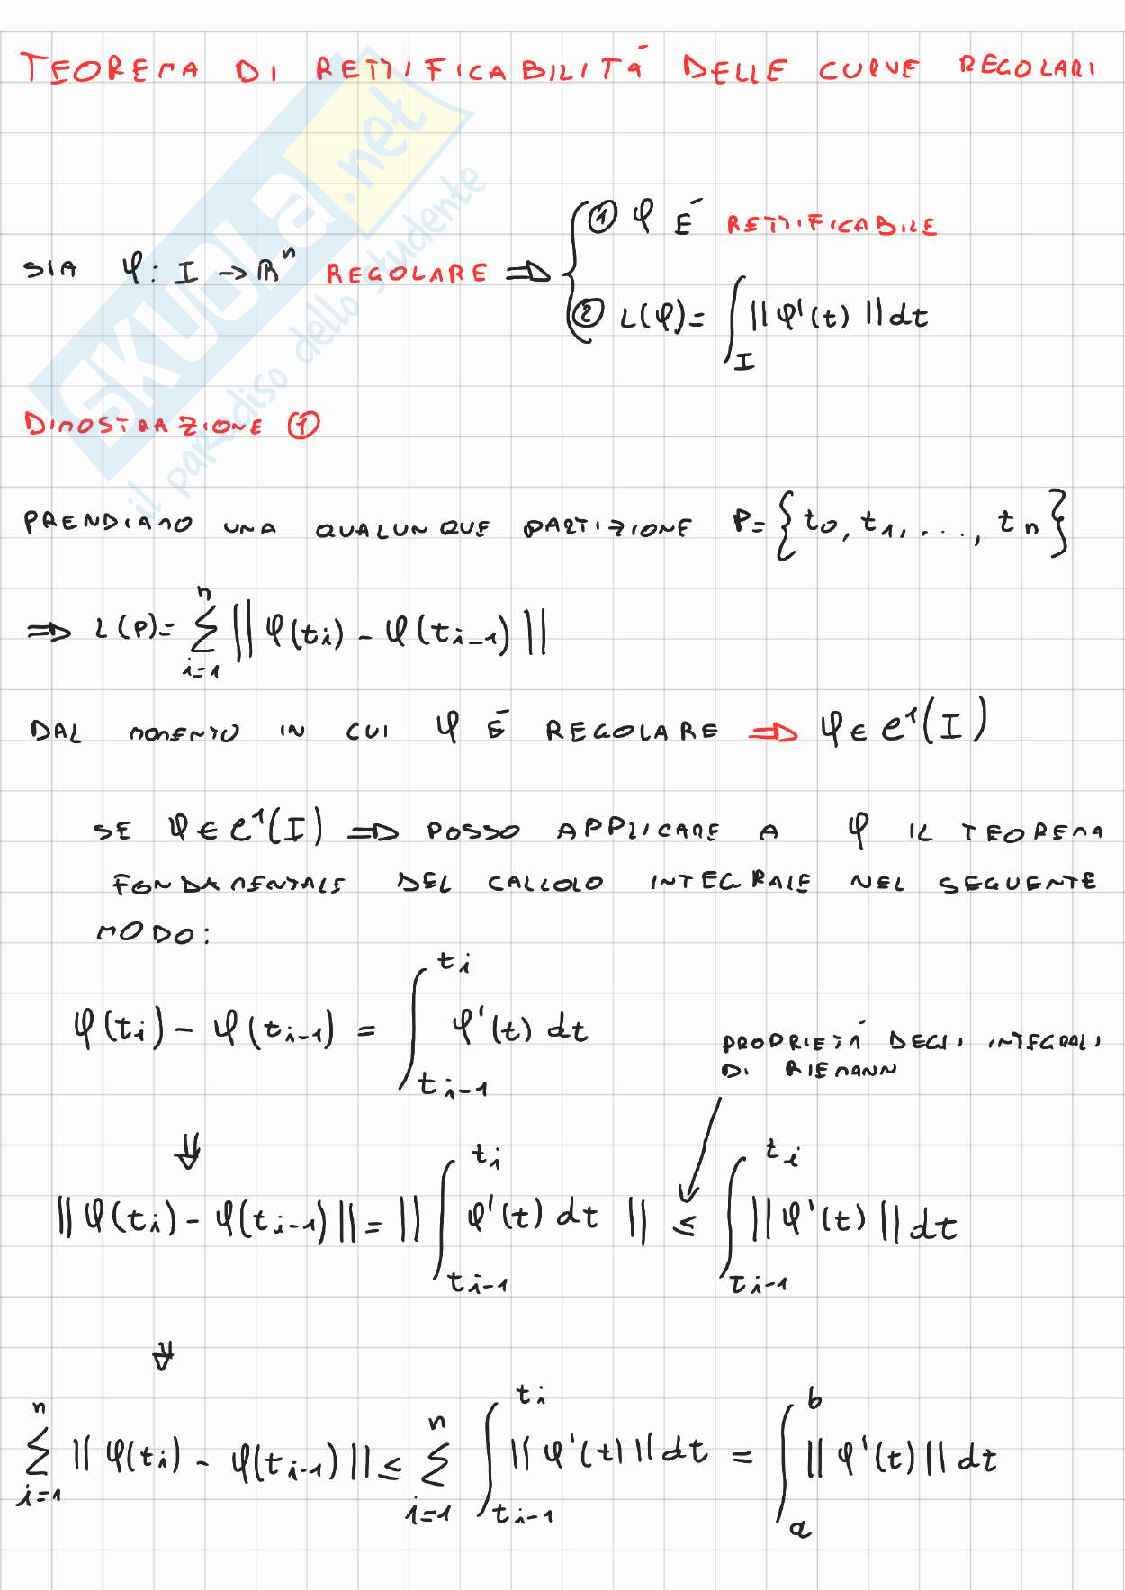 TEOREMA DI RETTIFICABILITÁ DELLE CURVE REGOLARI
SIA φ: I → ℝⁿ REGOLARE ⇒ { ① φ É RETTIFICABILE
② L(φ) = ∫_I ||φ'(t)|| dt
DIMOSTRAZIONE ①
PRENDIAMO UNA QUALUNQUE PARTIZIONE P = {t₀, t₁, ..., tₙ}
⇒ L(P) = ∑_{i=1}^{n} ||φ(t_i) - φ(t_{i-1})||
DAL MOMENTO IN CUI φ É REGOLARE ⇒ φ ∈ C¹(I)
SE φ ∈ C¹(I) ⇒ POSSO APPLICARE A φ IL TEOREMA
FONDAMENTALE DEL CALCOLO INTEGRALE NEL SEGUENTE
MODO:
φ(t_i) - φ(t_{i-1}) = ∫_{t_{i-1}}^{t_i} φ'(t) dt
PROPRIETÁ DEGLI INTEGRALI
DI RIEMANN
⇓
||φ(t_i) - φ(t_{i-1})|| = ||∫_{t_{i-1}}^{t_i} φ'(t) dt|| ≤ ∫_{t_{i-1}}^{t_i} ||φ'(t)|| dt
⇓
∑_{i=1}^{n} ||φ(t_i) - φ(t_{i-1})|| ≤ ∑_{i=1}^{n} ∫_{t_{i-1}}^{t_i} ||φ'(t)|| dt = ∫_a^b ||φ'(t)|| dt
SKUOLA.net
il paradiso dello studente